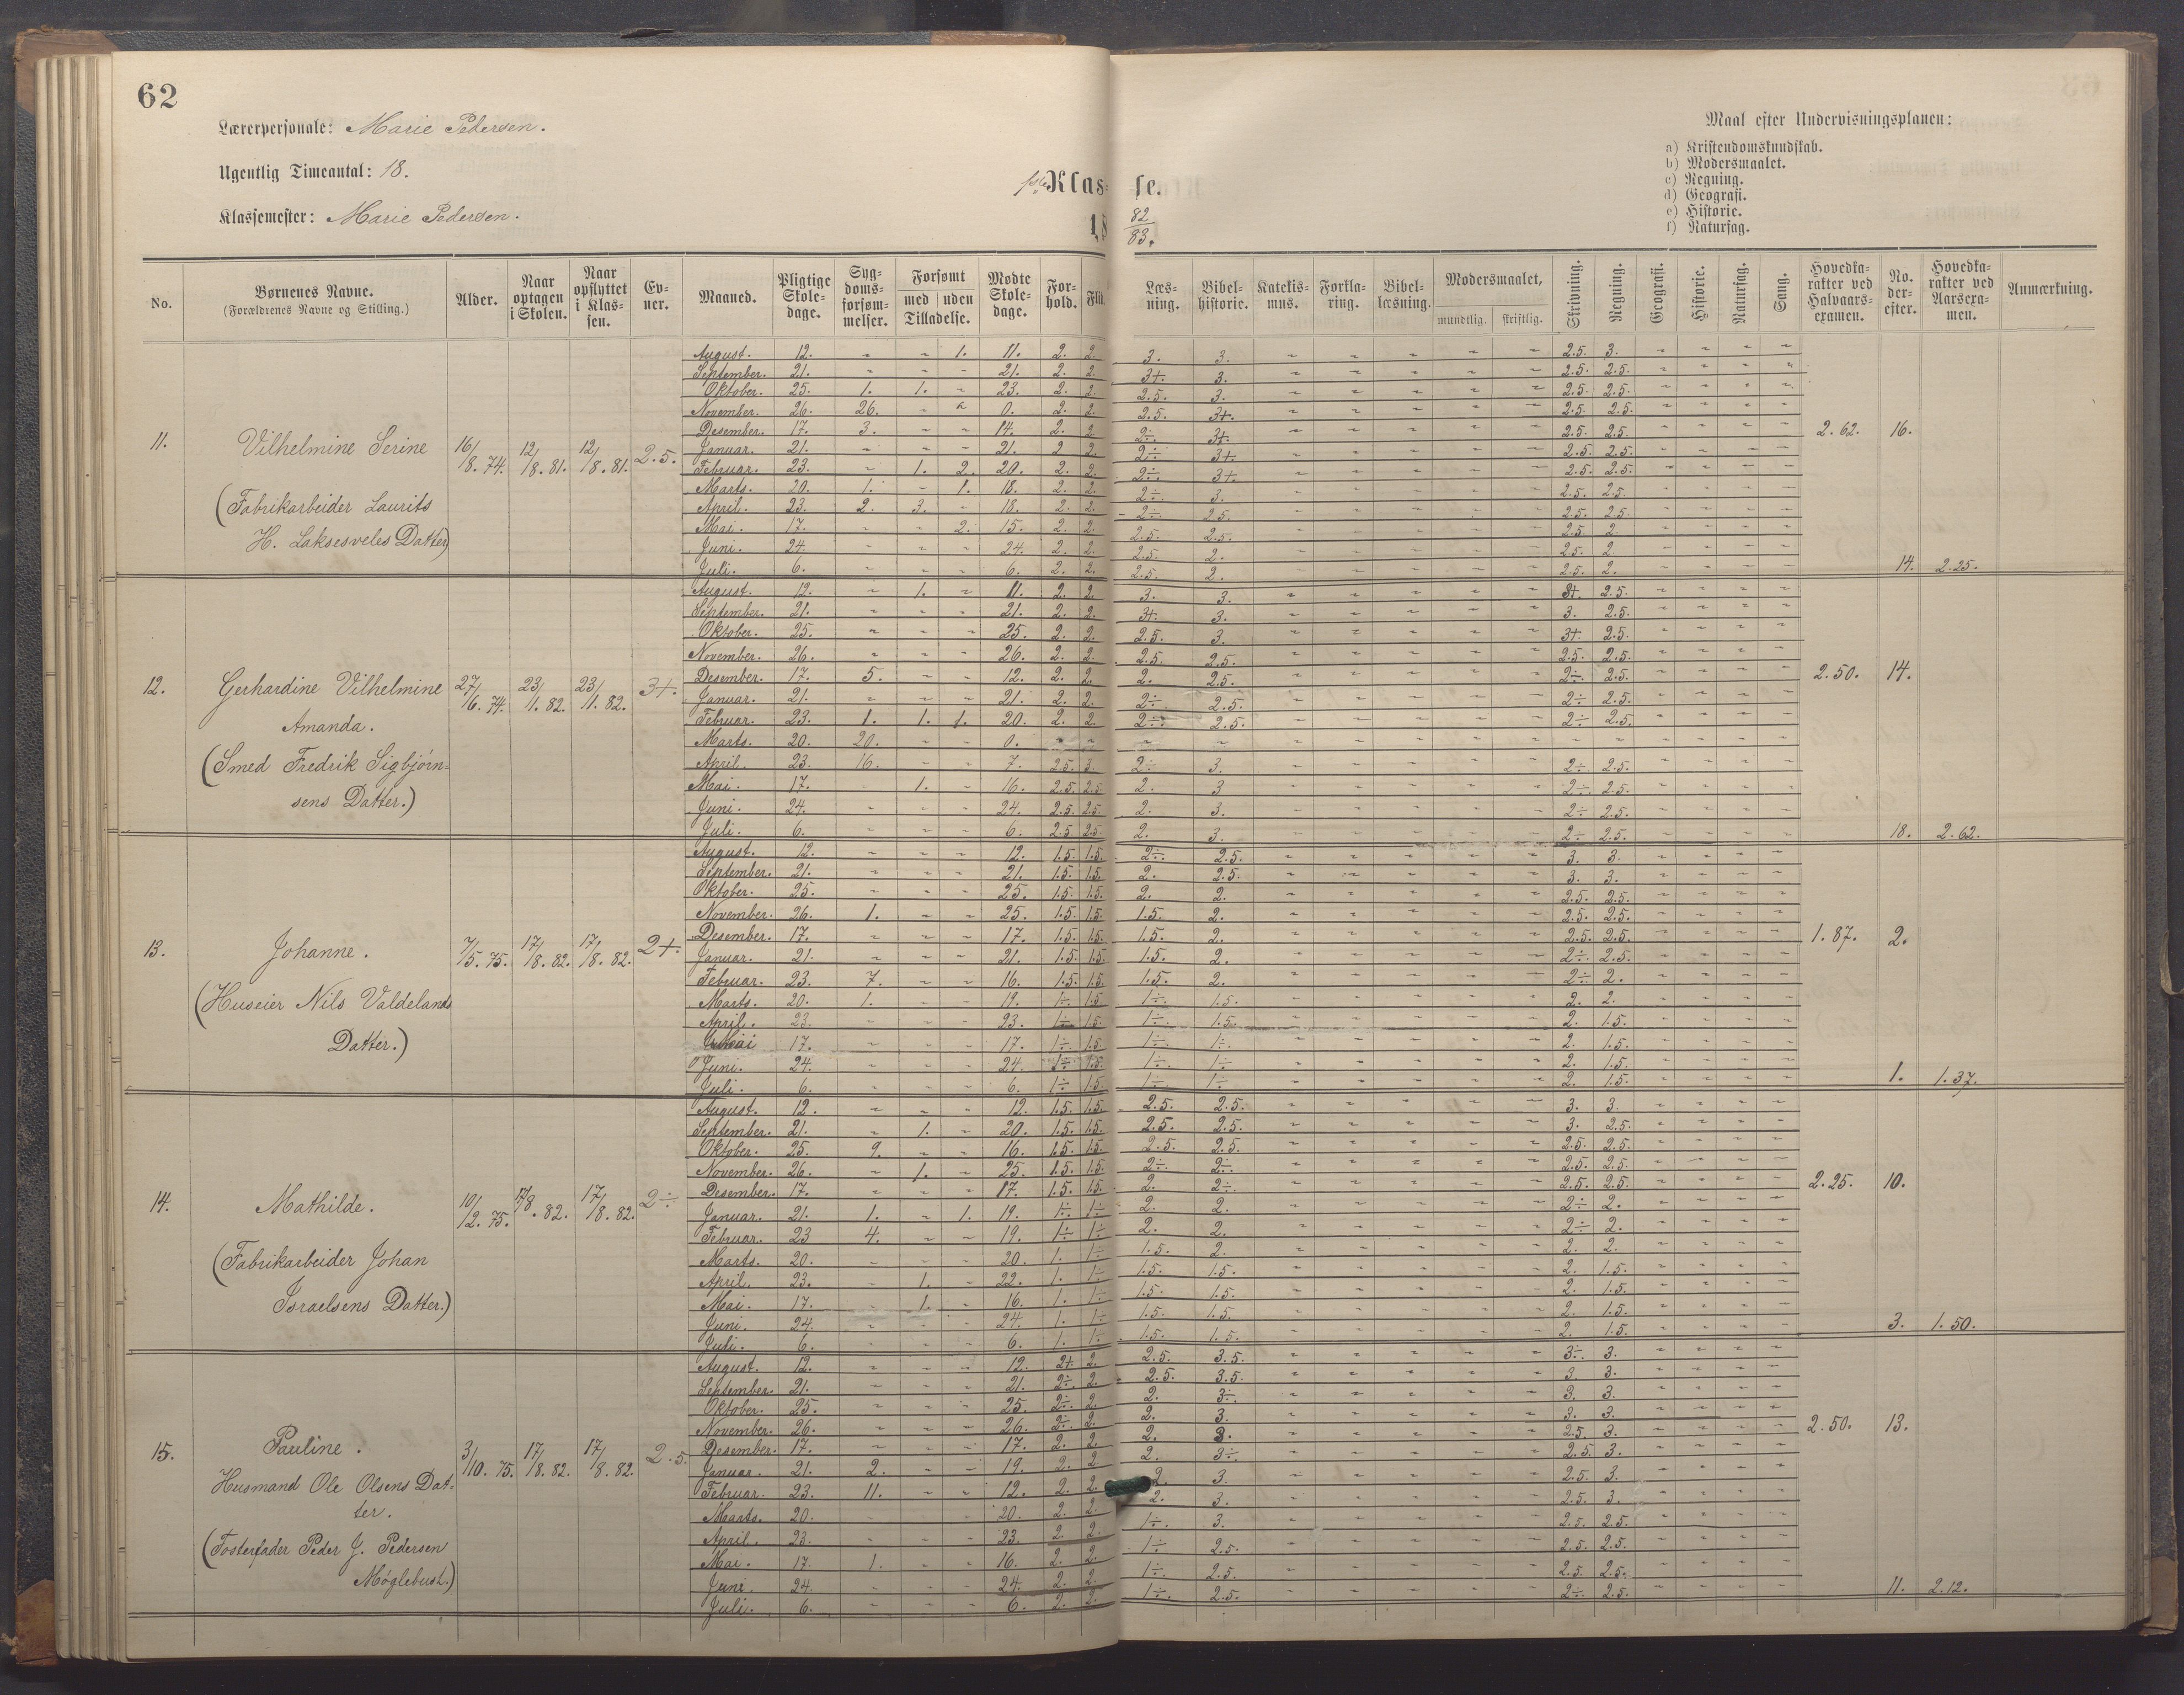 62
Lærerpersonale: Marie Pedersen.
Ugentlig Timeantal: 18.
Klassemester: Marie Pedersen.
Klasse.
18 82/83.
Maal efter Undervisningsplanen:
a) Kristendomskundskab.
b) Modersmaalet.
c) Regning.
d) Geografi.
e) Historie.
f) Naturfag.
No. | Børnenes Navne. (Forældrenes Navne og Stilling.) | Alder. | Naar optagen i Skolen. | Naar opflyttet i Klassen. | Evner. | Maaned. | Pligtige Skoledage. | Sygdomsforsømmelser. | Forsømt med uden Tilladelse. | Mødte Skoledage. | Forhold. | Flid. | Læsning. | Bibelhistorie. | Katekismus. | Forklaring. | Bibellæsning. | Modersmaalet, mundtlig. skriftlig. | Skrivning. | Regning. | Geografi. | Historie. | Naturfag. | Sang. | Hovedkarakter ved Halvaarsexamen. | No. derefter. | Hovedkarakter ved Aarsexamen. | Anmærkning.
11. Vilhelmine Serine 16/8. 74. 12/8. 81. 12/8. 81. 2.5.
(Fabrikarbeider Laurits
H. Laksesveles Datter)
August. 12. - - 1. 11. 2. 2. 3. 3. - - - - - 2.5. 3. - - - -
September. 21. - - - 21. 2. 2. 3+. 3. - - - - - 2.5. 2.5. - - - -
Oktober. 25. 1. 1. - 23. 2. 2. 2.5. 3. - - - - - 2.5. 2.5. - - - -
November. 26. 26. - - 0. 2. 2. 2.5. 3+. - - - - - 2.5. 2.5. - - - -
Desember. 17. 3. - - 14. 2. 2. 2÷. 3+. - - - - - 2.5. 2.5. - - - - 2.62. 16.
Januar. 21. - - - 21. 2 2. 2÷. 3+. - - - - - 2.5. 2.5. - - - -
Februar. 23. - 1. 2. 20. 2. 2. 2÷. 3+. - - - - - 2.5. 2.5. - - - -
Marts. 20. 1. - 1. 18. 2. 2. 2÷. 3. - - - - - 2.5. 2.5. - - - -
April. 23. 2. 3. - 18. 2. 2. 2÷. 2.5. - - - - - 2.5. 2.5. - - - -
Mai. 17. - - 2. 15. 2. 2. 2.5. 2.5. - - - - - 2.5. 2. - - - -
Juni. 24. - - - 24. 2. 2. 2.5. 2. - - - - - 2.5. 2. - - - -
Juli. 6. - - - 6. 2. 2. 2.5. 2. - - - - - 2.5. 2. - - - - 14. 2.25.
12. Gerhardine Vilhelmine 27/6. 74. 23/1. 82. 23/1. 82. 3+.
Amanda.
(Smed Fredrik Sigbjørn-
sens Datter.)
August. 12. - 1. - 11. 2. 2. 3. 3. - - - - - 3+. 2.5. - - - -
September. 21. - - - 21. 2. 2. 3+. 3. - - - - - 3. 2.5. - - - -
Oktober. 25. - - - 25. 2. 2. 2.5. 3. - - - - - 3+ 2.5. - - - -
November. 26. - - - 26. 2. 2. 2.5. 2.5. - - - - - 2.5. 2.5. - - - -
Desember. 17. 5. - - 12. 2. 2. 2. 2.5. - - - - - 2÷. 2.5. - - - - 2.50. 14.
Januar. 21. - - - 21. 2. 2. 2÷. 2.5. - - - - - 2÷ 2.5. - - - -
Februar. 23. 1. 1. 1. 20. 2. 2. 2÷. 2.5. - - - - - 2÷ 2.5. - - - -
Marts. 20. 20. - - 0. - - - - - - - - - - - - - - -
April. 23. 16. - - 7. 2.5. 3. 2÷ 3. - - - - - 2÷. 2.5. - - - -
Mai. 17. 1. - 16. 2.5. 2.5. 2. 3 - - - - - 2÷. 2.5. - - - -
Juni. 24. - - - 24. 2.5. 2.5. 2. 3. - - - - - 2÷ 2.5. - - - -
Juli. 6. - - - 6. 2.5 2.5. 2. 3. - - - - - 2÷ 2.5. - - - - 18. 2.62.
13. Johanne. 7/5. 75. 17/8. 82. 17/8. 82. 2+.
(Huseier Nils Valdelands
Datter.)
August. 12. - - - 12. 1.5. 1.5. 2÷. 2.5. - - - - - 3. 3. - - - -
September. 21. - - - 21. 1.5. 1.5. 2. 2.5. - - - - - 3. 3. - - - -
Oktober. 25. - - - 25. 1.5. 1.5. 2. 2. - - - - - 2.5. 2.5. - - - -
November. 26. 1. - - 25. 1.5. 1.5. 1.5. 2. - - - - - 2.5. 2.5. - - - -
Desember. 17. - - - 17. 1.5. 1.5. 1.5. 2. - - - - - 2.5. 2.5. - - - - 1.87. 2.
Januar. 21. - - - 21. 1.5. 1.5. 1.5. 2. - - - - - 2÷. 2.5. - - - -
Februar. 23. 7. - - 16. 1.5. 1.5. 1.5. 2. - - - - - 2÷ 2. - - - -
Marts. 20. 1. - - 19. 1÷. 1.5 1÷. 1.5. - - - - - 2. 2. - - - -
April. 23. - - - 23. 1÷ 1.5. 1÷. 1.5. - - - - - 2. 1.5. - - - -
Mai 17. - - - 17. 1÷. 1.5 1÷. 1÷. - - - - - 2. 1.5. - - - -
Juni. 24. - - - 24. 1÷ 1.5. 1÷. 1÷. - - - - - 2. 1.5. - - - -
Juli. 6. - - - 6. 1÷ 1.5 1÷. 1÷. - - - - - 2. 1.5. - - - - 1. 1.37.
14. Mathilde. 10/12. 75. 17/8. 82. 17/8. 82. 2÷
(Fabrikarbeider Johan
Israelsens Datter.)
August. 12. - - - 12. 1.5. 1.5. 2.5. 2.5. - - - - - 3. 3. - - - -
September. 21. - 1. - 20. 1.5. 1.5. 2.5. 2.5. - - - - - 3. 2.5. - - - -
Oktober. 25. 9. - - 16. 1.5. 1.5. 2.5. 2.5. - - - - - 2.5. 2.5. - - - -
November. 26. - 1. - 25. 1.5. 1.5. 2÷. 2÷. - - - - - 2.5. 2.5. - - - -
Desember. 17. - - - 17. 1.5. 1.5. 2. 2÷. - - - - - 2.5. 2.5. - - - - 2.25. 10.
Januar. 21. 1. - 1. 19. 1÷ 1÷ 2. 2. - - - - - 2÷ 2. - - - -
Februar. 23 4. - - 19. 1÷ 1÷ 2. 2. - - - - - 2÷ 2. - - - -
Marts. 20. - - - 20. 1. 1÷ 1.5. 2. - - - - - 2. 2. - - - -
April. 23. - 1. - 22. 1. 1÷ 1.5. 1.5. - - - - - 2. 1.5. - - - -
Mai. 17. - 1. - 16. 1. 1÷ 1.5. 1.5. - - - - - 2. 1.5. - - - -
Juni. 24. - - - 24. 1. 1÷ 1.5. 1.5. - - - - - 2. 1.5. - - - -
Juli. 6. - - - 6. 1. 1÷ 1.5. 1.5. - - - - - 2. 1.5. - - - - 3. 1.50.
15. Pauline. 3/10. 75. 17/8. 82. 17/8. 82. 2.5.
Husmand Ole Olsens Dat-
ter.
(Fosterfader Peder J. Pedersen
Møglebust.)
August. 12. - - - 12. 2+. 2. 2.5. 3.5. - - - - - 3÷. 3. - - - -
September. 21. - - - 21. 2÷. 2. 2.5. 3.5. - - - - - 3 3. - - - -
Oktober. 25. - - - 25. 2÷. 2. 2. 3÷ - - - - - 3. 3. - - - -
November. 26. - - - 26. 2÷. 2. 2. 3. - - - - - 3. 3. - - - -
Desember. 17. - - - 17. 2. 2. 2. 3. - - - - - 2.5. 3. - - - - 2.50. 13.
Januar. 21. 2. - - 19. 2. 2 2. 3÷. - - - - - 2.5 3. - - - -
Februar. 23. 11. - - 12. 2. 2. 2. 3. - - - - - 2.5. 3. - - - -
Marts. 20. - - - 20. 2. 2. 2. 3. - - - - - 2.5. 3. - - - -
April. 23. - - - 23. 2. 2. 1÷. 3. - - - - - 2.5. 2.5. - - - -
Mai. 17. 1. - - 16. 2. 2. 1÷ 2.5. - - - - - 2.5. 2.5. - - - -
Juni. 24. - - - 24. 2. 2. 1÷ 2.5. - - - - - 2.5. 2.5. - - - -
Juli. 6. - - - 6. 2. 2. 1÷. 2.5. - - - - - 2÷. 2.5. - - - - 11. 2.12.